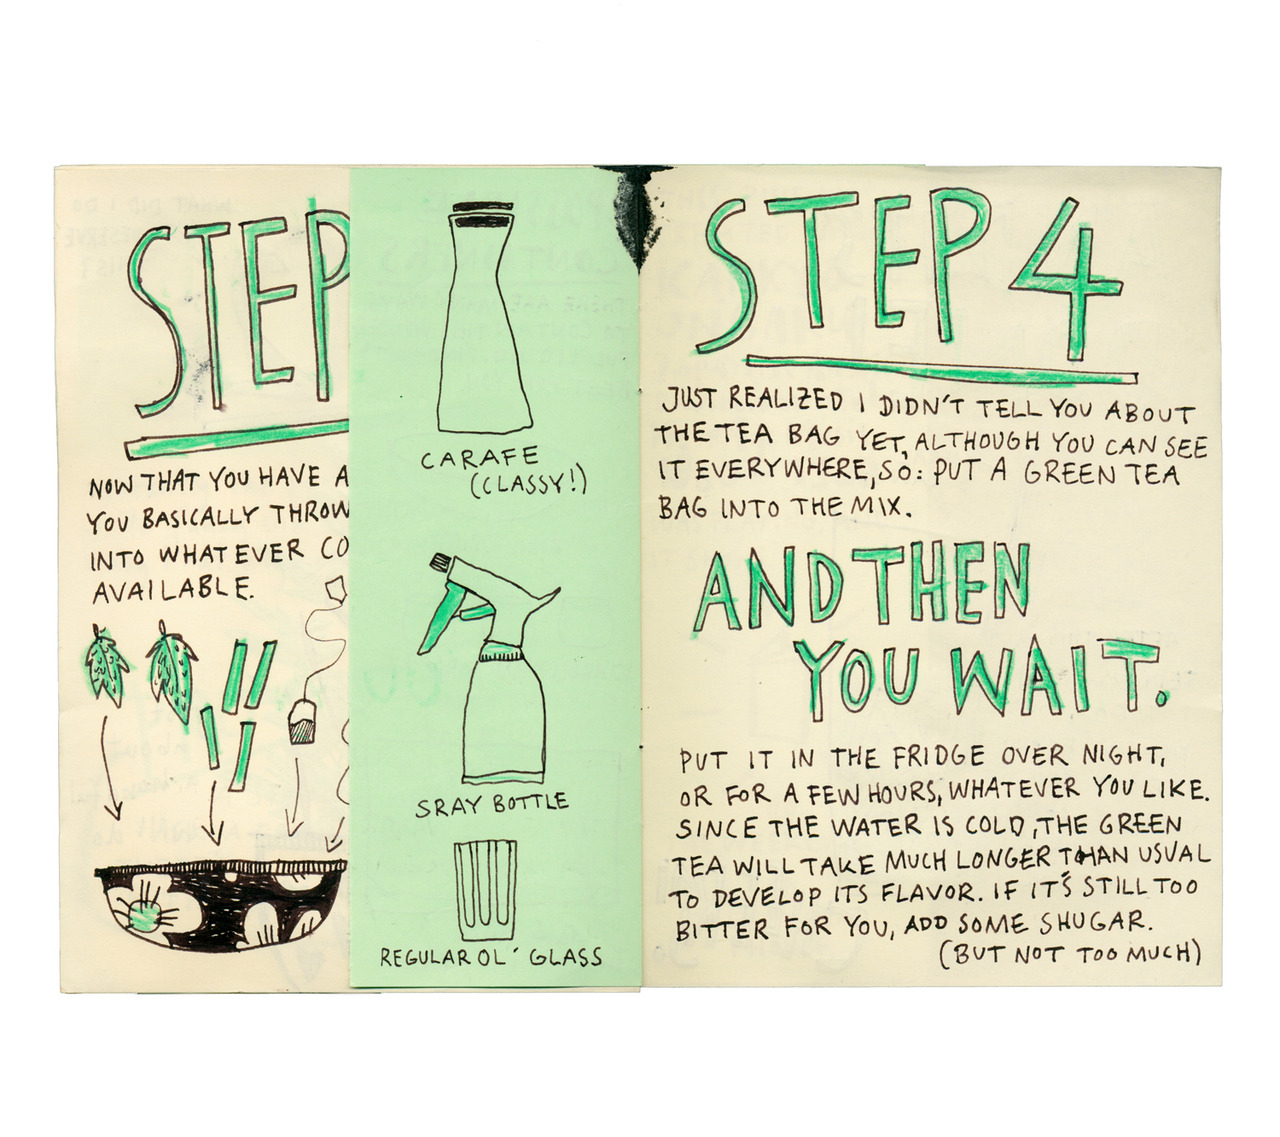 STEP
NOW THAT YOU HAVE A
YOU BASICALLY THROW
INTO WHATEVER CO
AVAILABLE.
CARAFE
(CLASSY!)
SRAY BOTTLE
REGULAR OL' GLASS
STEP 4
JUST REALIZED I DIDN'T TELL YOU ABOUT
THE TEA BAG YET, ALTHOUGH YOU CAN SEE
IT EVERYWHERE, SO: PUT A GREEN TEA
BAG INTO THE MIX.
AND THEN
YOU WAIT.
PUT IT IN THE FRIDGE OVER NIGHT,
OR FOR A FEW HOURS, WHATEVER YOU LIKE.
SINCE THE WATER IS COLD, THE GREEN
TEA WILL TAKE MUCH LONGER THAN USUAL
TO DEVELOP ITS FLAVOR. IF IT'S STILL TOO
BITTER FOR YOU, ADD SOME SHUGAR.
(BUT NOT TOO MUCH)